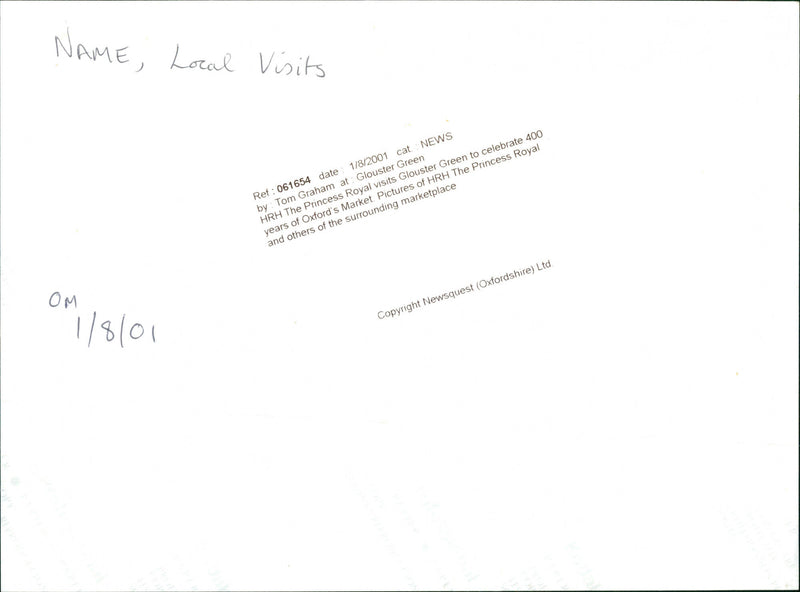 NAME, Local Visits
Ref : 061654 date : 1/8/2001 cat : NEWS
by : Tom Graham at : Glouster Green
HRH The Princess Royal visits Glouster Green to celebrate 400
years of Oxford's Market. Pictures of HRH The Princess Royal
and others of the surrounding marketplace
Copyright Newsquest (Oxfordshire) Ltd.
OM
1/8/01